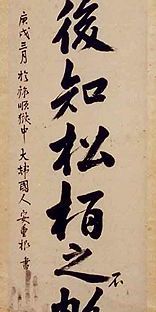 後知松栢之不
庚戌三月 於旅順獄中 大韓國人 安重根 書